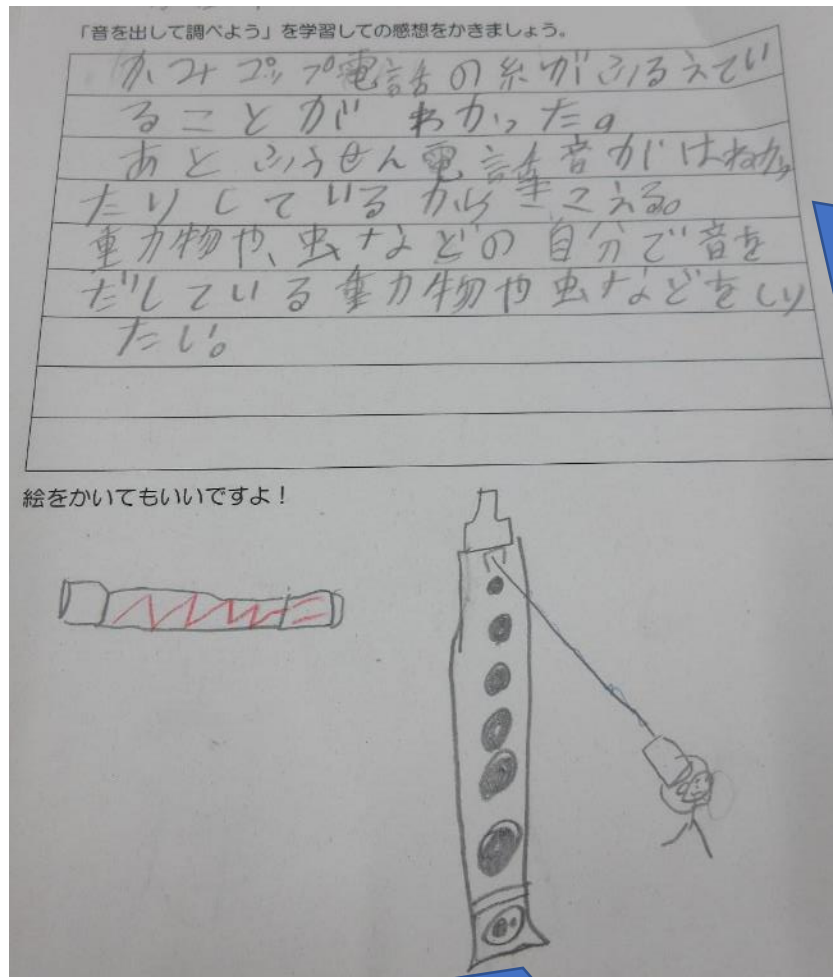 「音を出して調べよう」を学習しての感想をかきましょう。
かみコップ電話の糸がふるえてい
ることが わかった。
あと ふうせん電話音がはねかっ
たりしているからきこえる。
動物や、虫などの自分で音を
だしている動物や虫などをしり
たい。
絵をかいてもいいですよ！